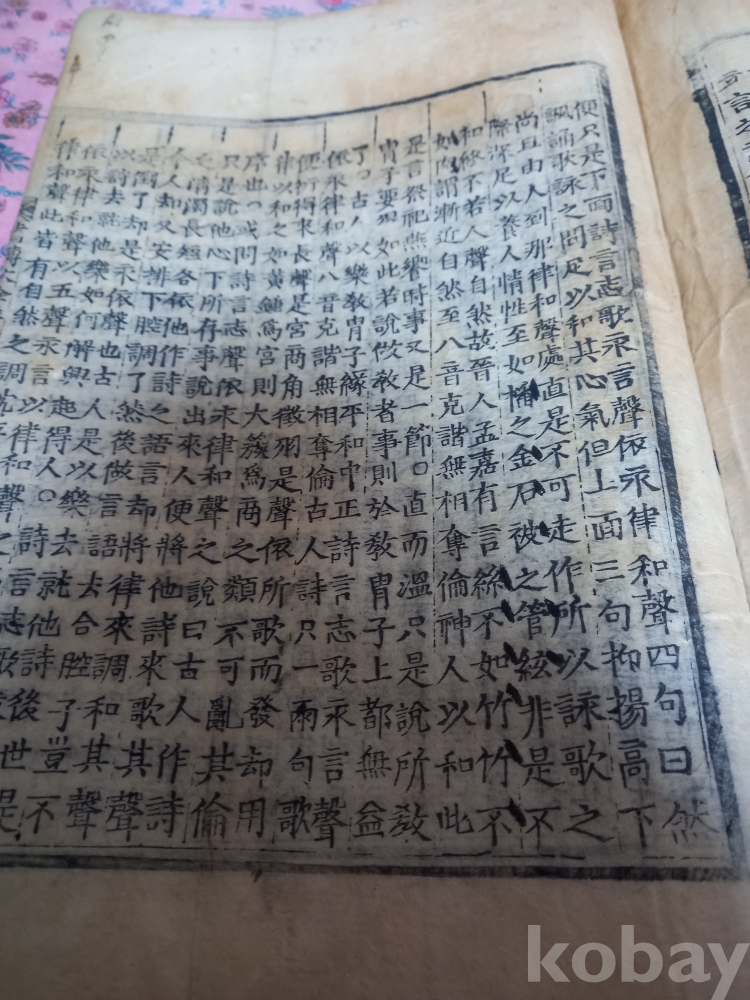 便只是下面詩言志歌永言聲依永律和聲四句曰然
諷誦歌詠之間足以和其心氣但上面三句抑揚高下
尚且由人到那律和聲處直是不可走作所以詠歌之
際深足以養人情性至如播之金石被之管絃非是不
和終不若人聲自然故晉人孟嘉有言絲不如竹竹不
如肉謂漸近自然至八音克諧無相奪倫神人以和此
是言祭祀燕饗時事又是一節○直而溫只是說所教
冑子要得如此若說做教者事則於教冑子上都無益
了○古人以樂教冑子緣平和中正詩言志歌永言聲
依永律和聲八音克諧無相奪倫古人詩只一兩句歌
便衍得來長聲是宮商角徵羽是聲依所歌而發却用
律以和之如黃鍾爲宮則大簇爲商之類不可亂其倫
序也○或問詩言志聲依永律和聲之說曰古人作詩
只是說他心下所存事說出來人便將他詩來歌其聲
之清濁長短各依他作詩之語言却將律來調和其聲
今人却又安排下腔調了然後做言語去合腔子豈不
是倒了却是永依聲也古人是以樂去就他詩後世是
以詩去就他樂如何解興起得人○詩言志歌
依永律和聲以五聲永言以律和聲之
律和聲此皆有自然之調
kobay